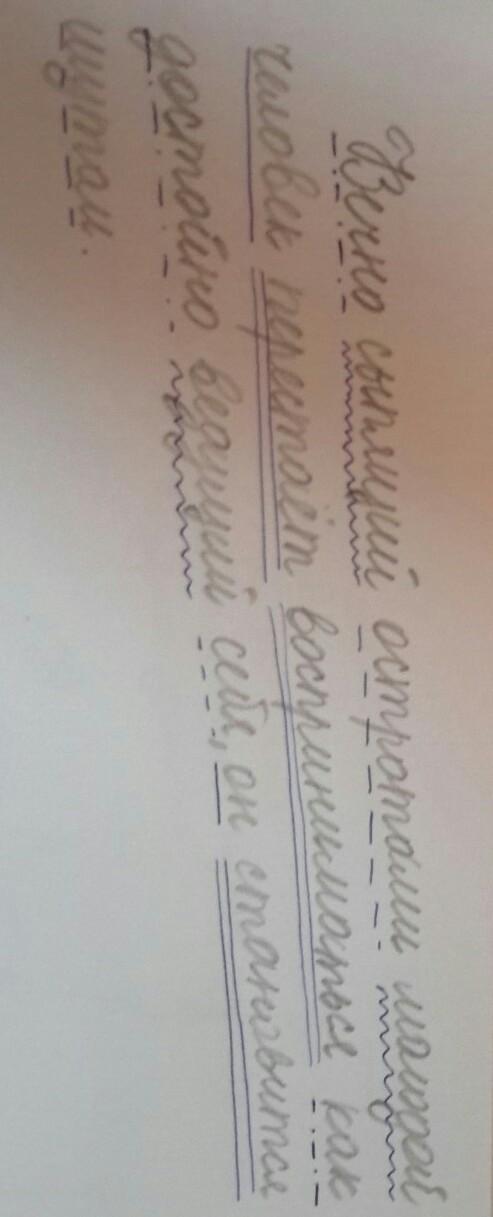 Вечно сыплящий остротами молодой
человек перестаёт восприниматься как
достойно ведущий себя, он становится
шутам.